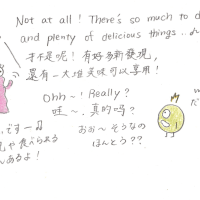 Not at all! There's so much to d
and plenty of delicious things..
才不是呢！有好多新發現，
還有一大堆美味可以享用！
Ohh~! Really?
哇~，真的嗎？
おお~ そうなの
ほんとう？？
ですー
べられる
あるよ！
だ